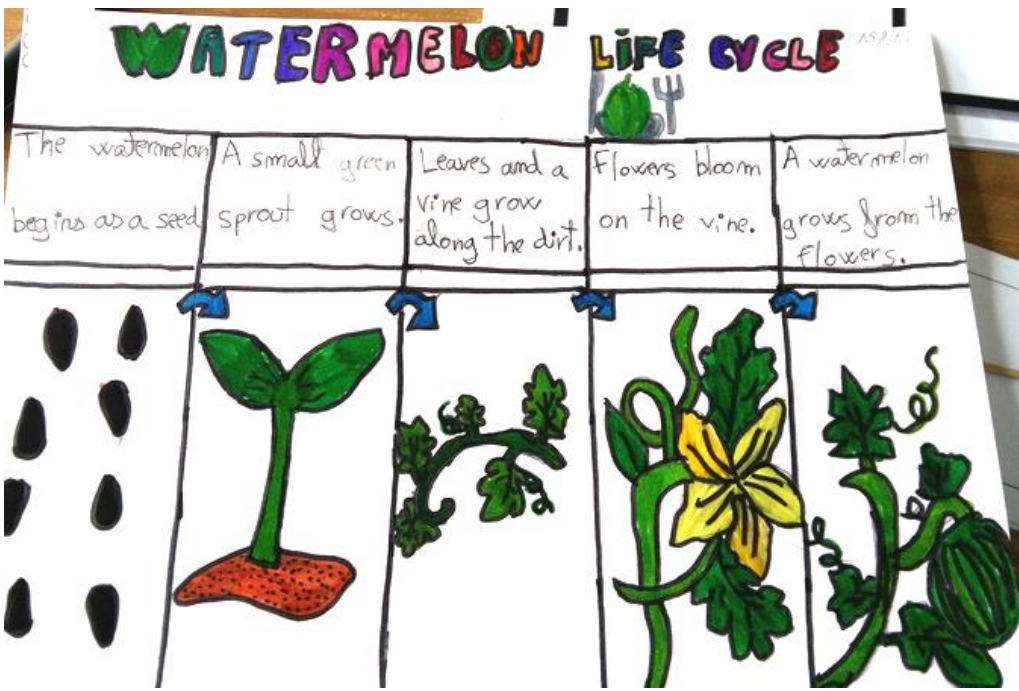 WATERMELON LIFE CYCLE
The watermelon
begins as a seed
A small green
sprout grows.
Leaves and a
vine grow
along the dirt.
Flowers bloom
on the vine.
A watermelon
grows from the
flowers.